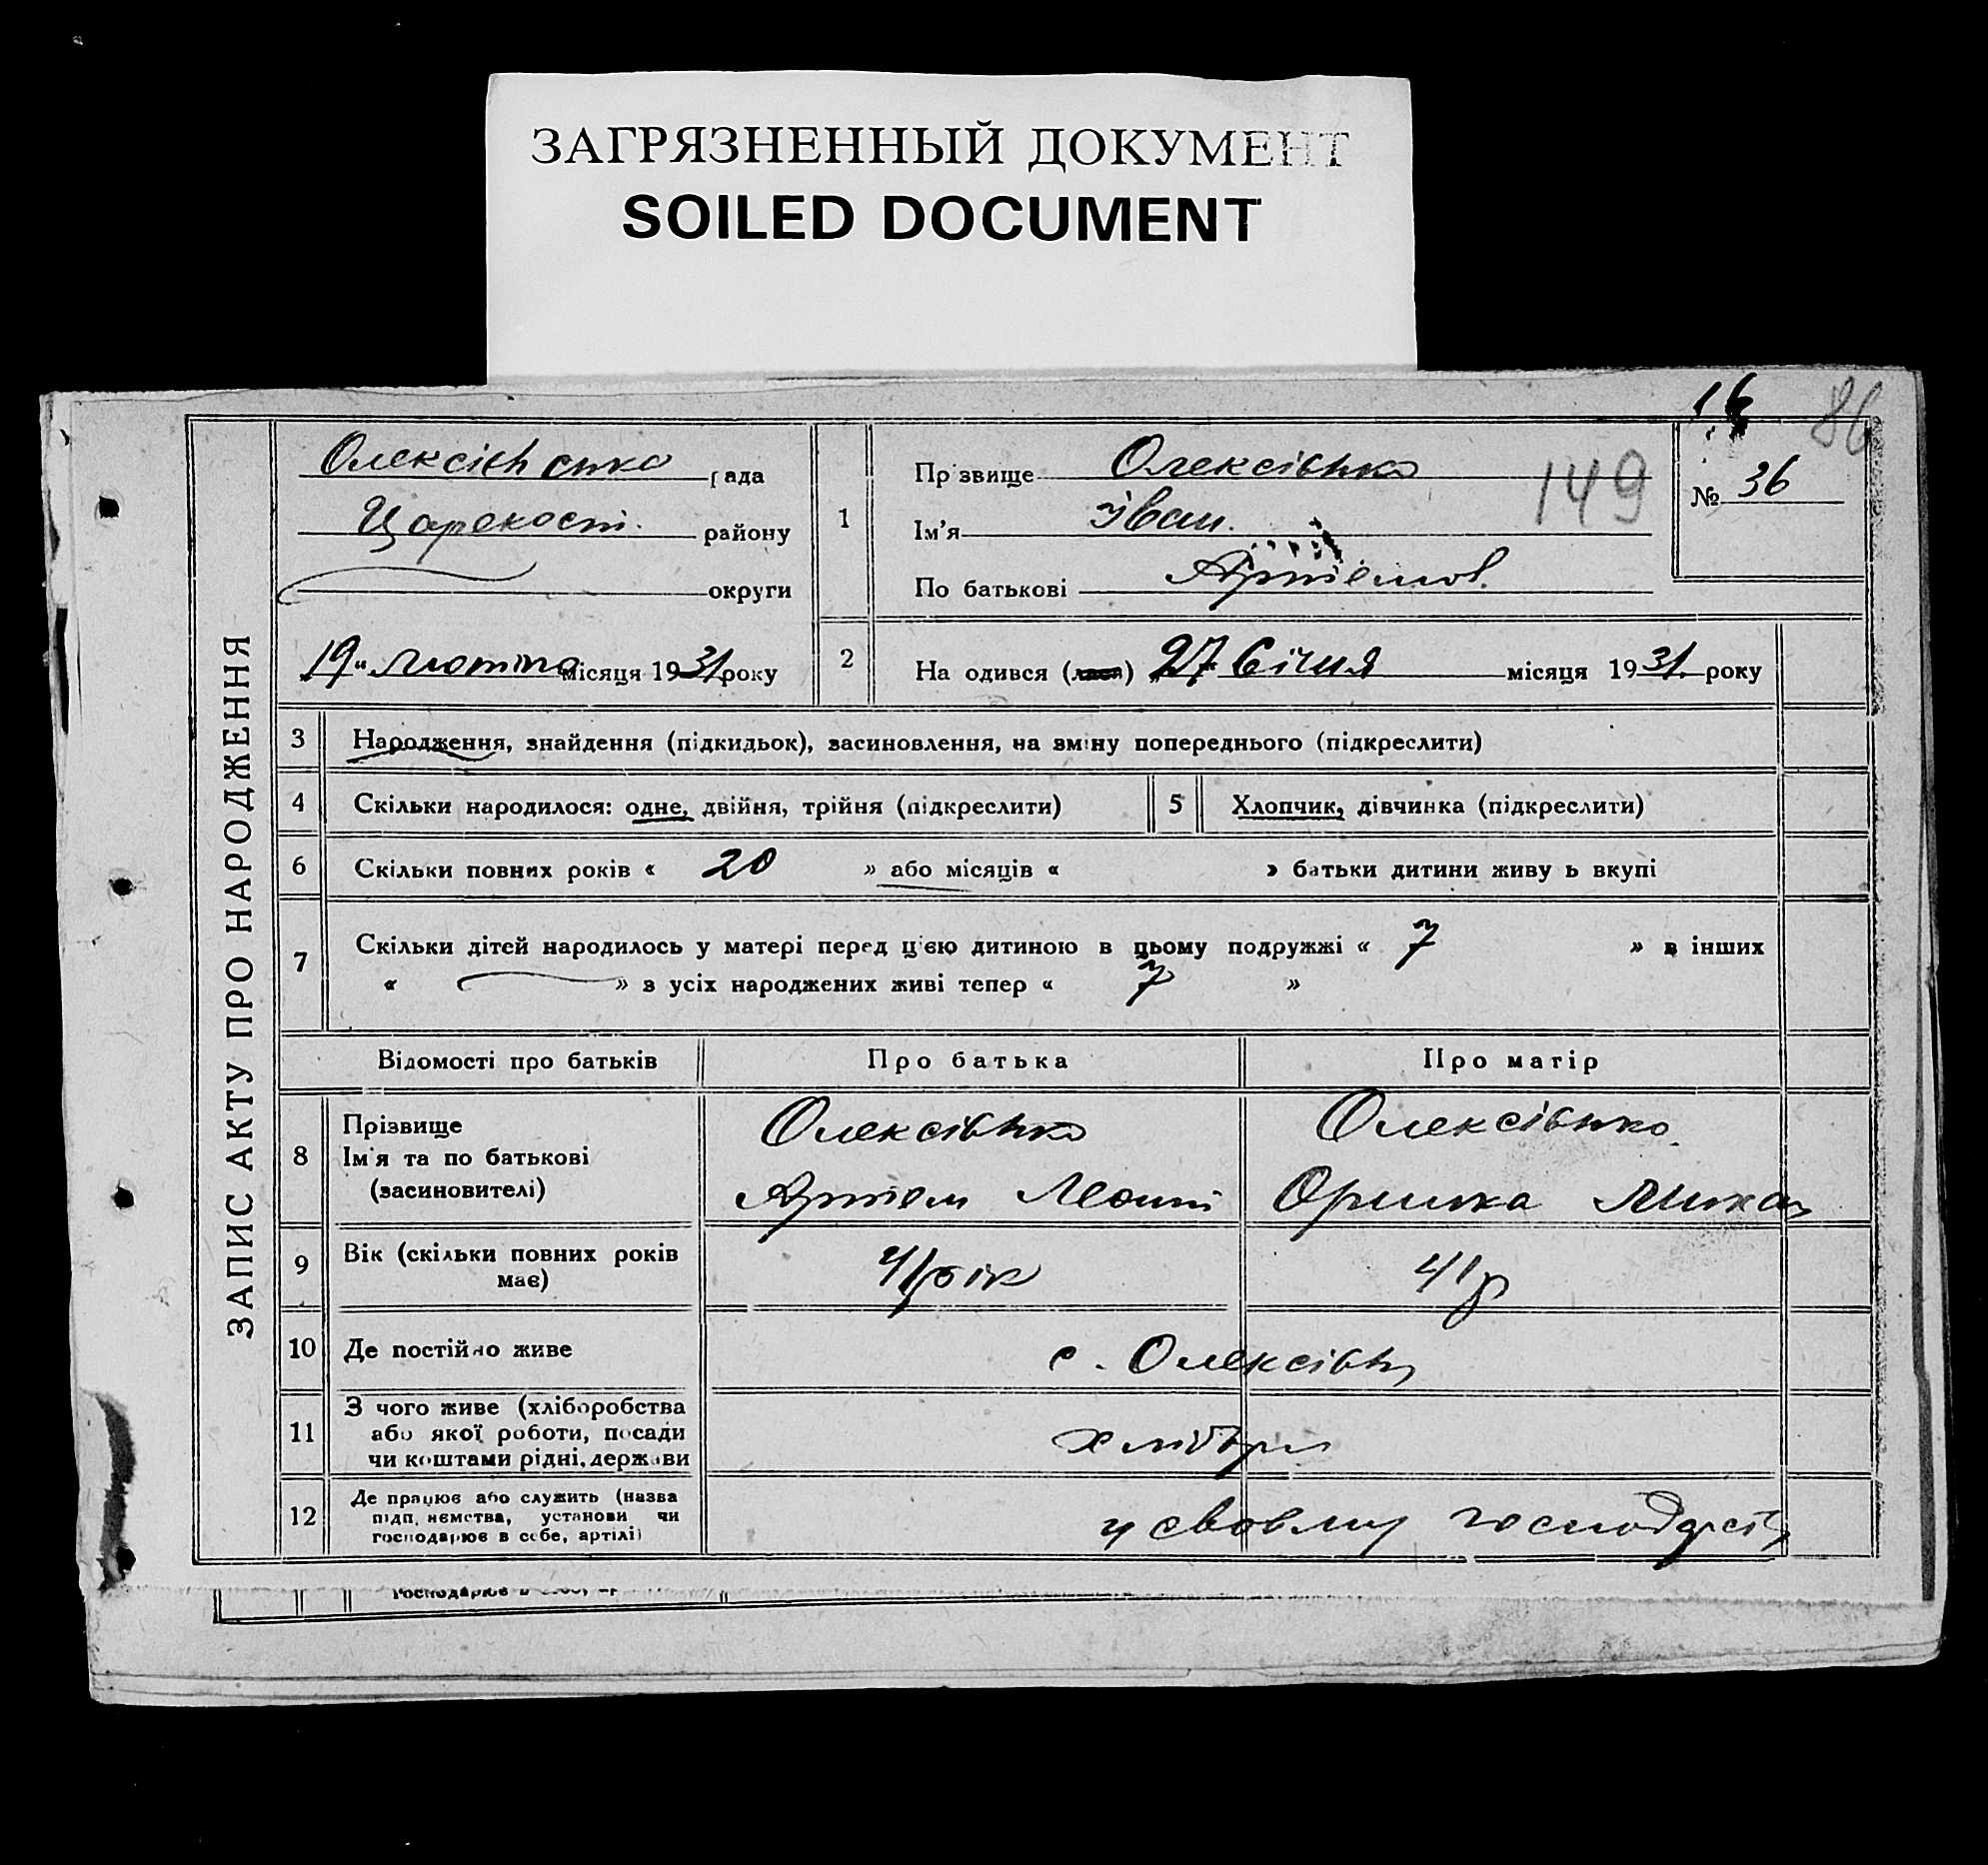 ЗАГРЯЗНЕННЫЙ ДОКУМЕНТ
SOILED DOCUMENT
16
86
ЗАПИС АКТУ ПРО НАРОДЖЕННЯ
рада
району
округи
19 лютого місяця 1931 року
1
Прізвище Олексієнко
149
Ім'я Іван
По батькові Артемов.
№ 36
2
На одився (лася) 27 Січня місяця 1931 року
3 Народження, знайдення (підкидьок), засиновлення, на зміну попереднього (підкреслити)
4 Скільки народилося: одне, двійня, трійня (підкреслити)
5 Хлопчик, дівчинка (підкреслити)
6 Скільки повних років « 20 » або місяців « » батьки дитини живу ь вкупі
7 Скільки дітей народилось у матері перед цією дитиною в цьому подружжі « 7 » в інших
« » з усіх народжених живі тепер « 7 »
Відомості про батьків
Про батька
Про матір
8 Прізвище
Ім'я та по батькові
(засиновителі)
Олексієнко
Артем
Олексієнко
Оришка
9 Вік (скільки повних років
має)
41 рік
41 р
10 Де постійно живе
с.
11 З чого живе (хліборобства
або якої роботи, посади
чи коштами рідні, держави
12 Де працює або служить (назва
підприємства, установи чи
господарює в себе, артілі)
у своєму
господарює в себе,